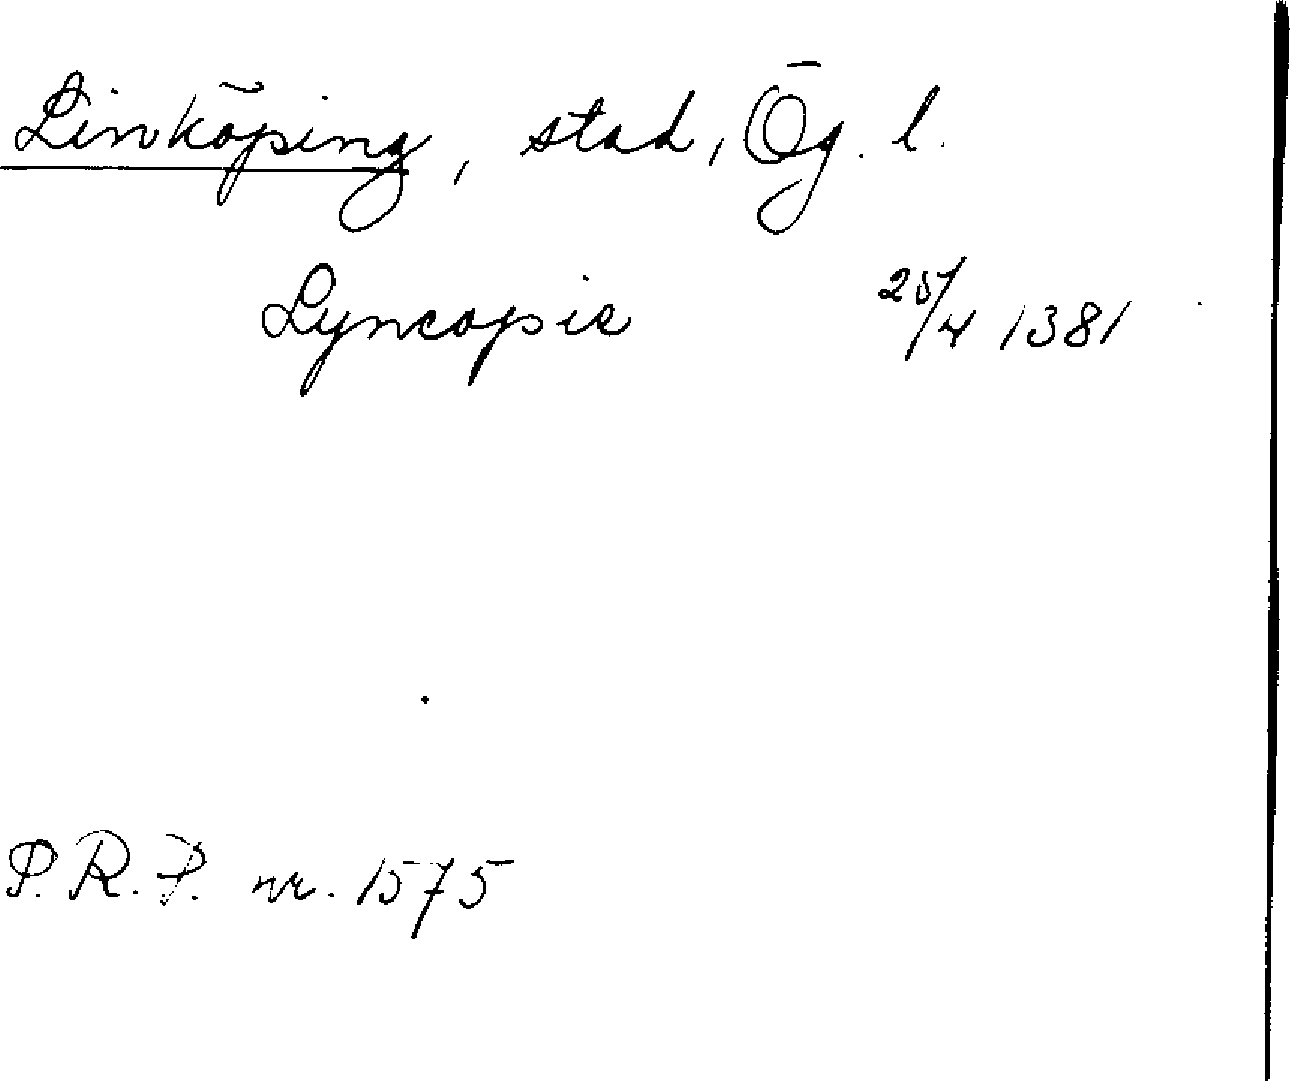 Linköping, stad, Ög. l.
Lyncopie 25/4 1381
P.R.P. nr. 1575